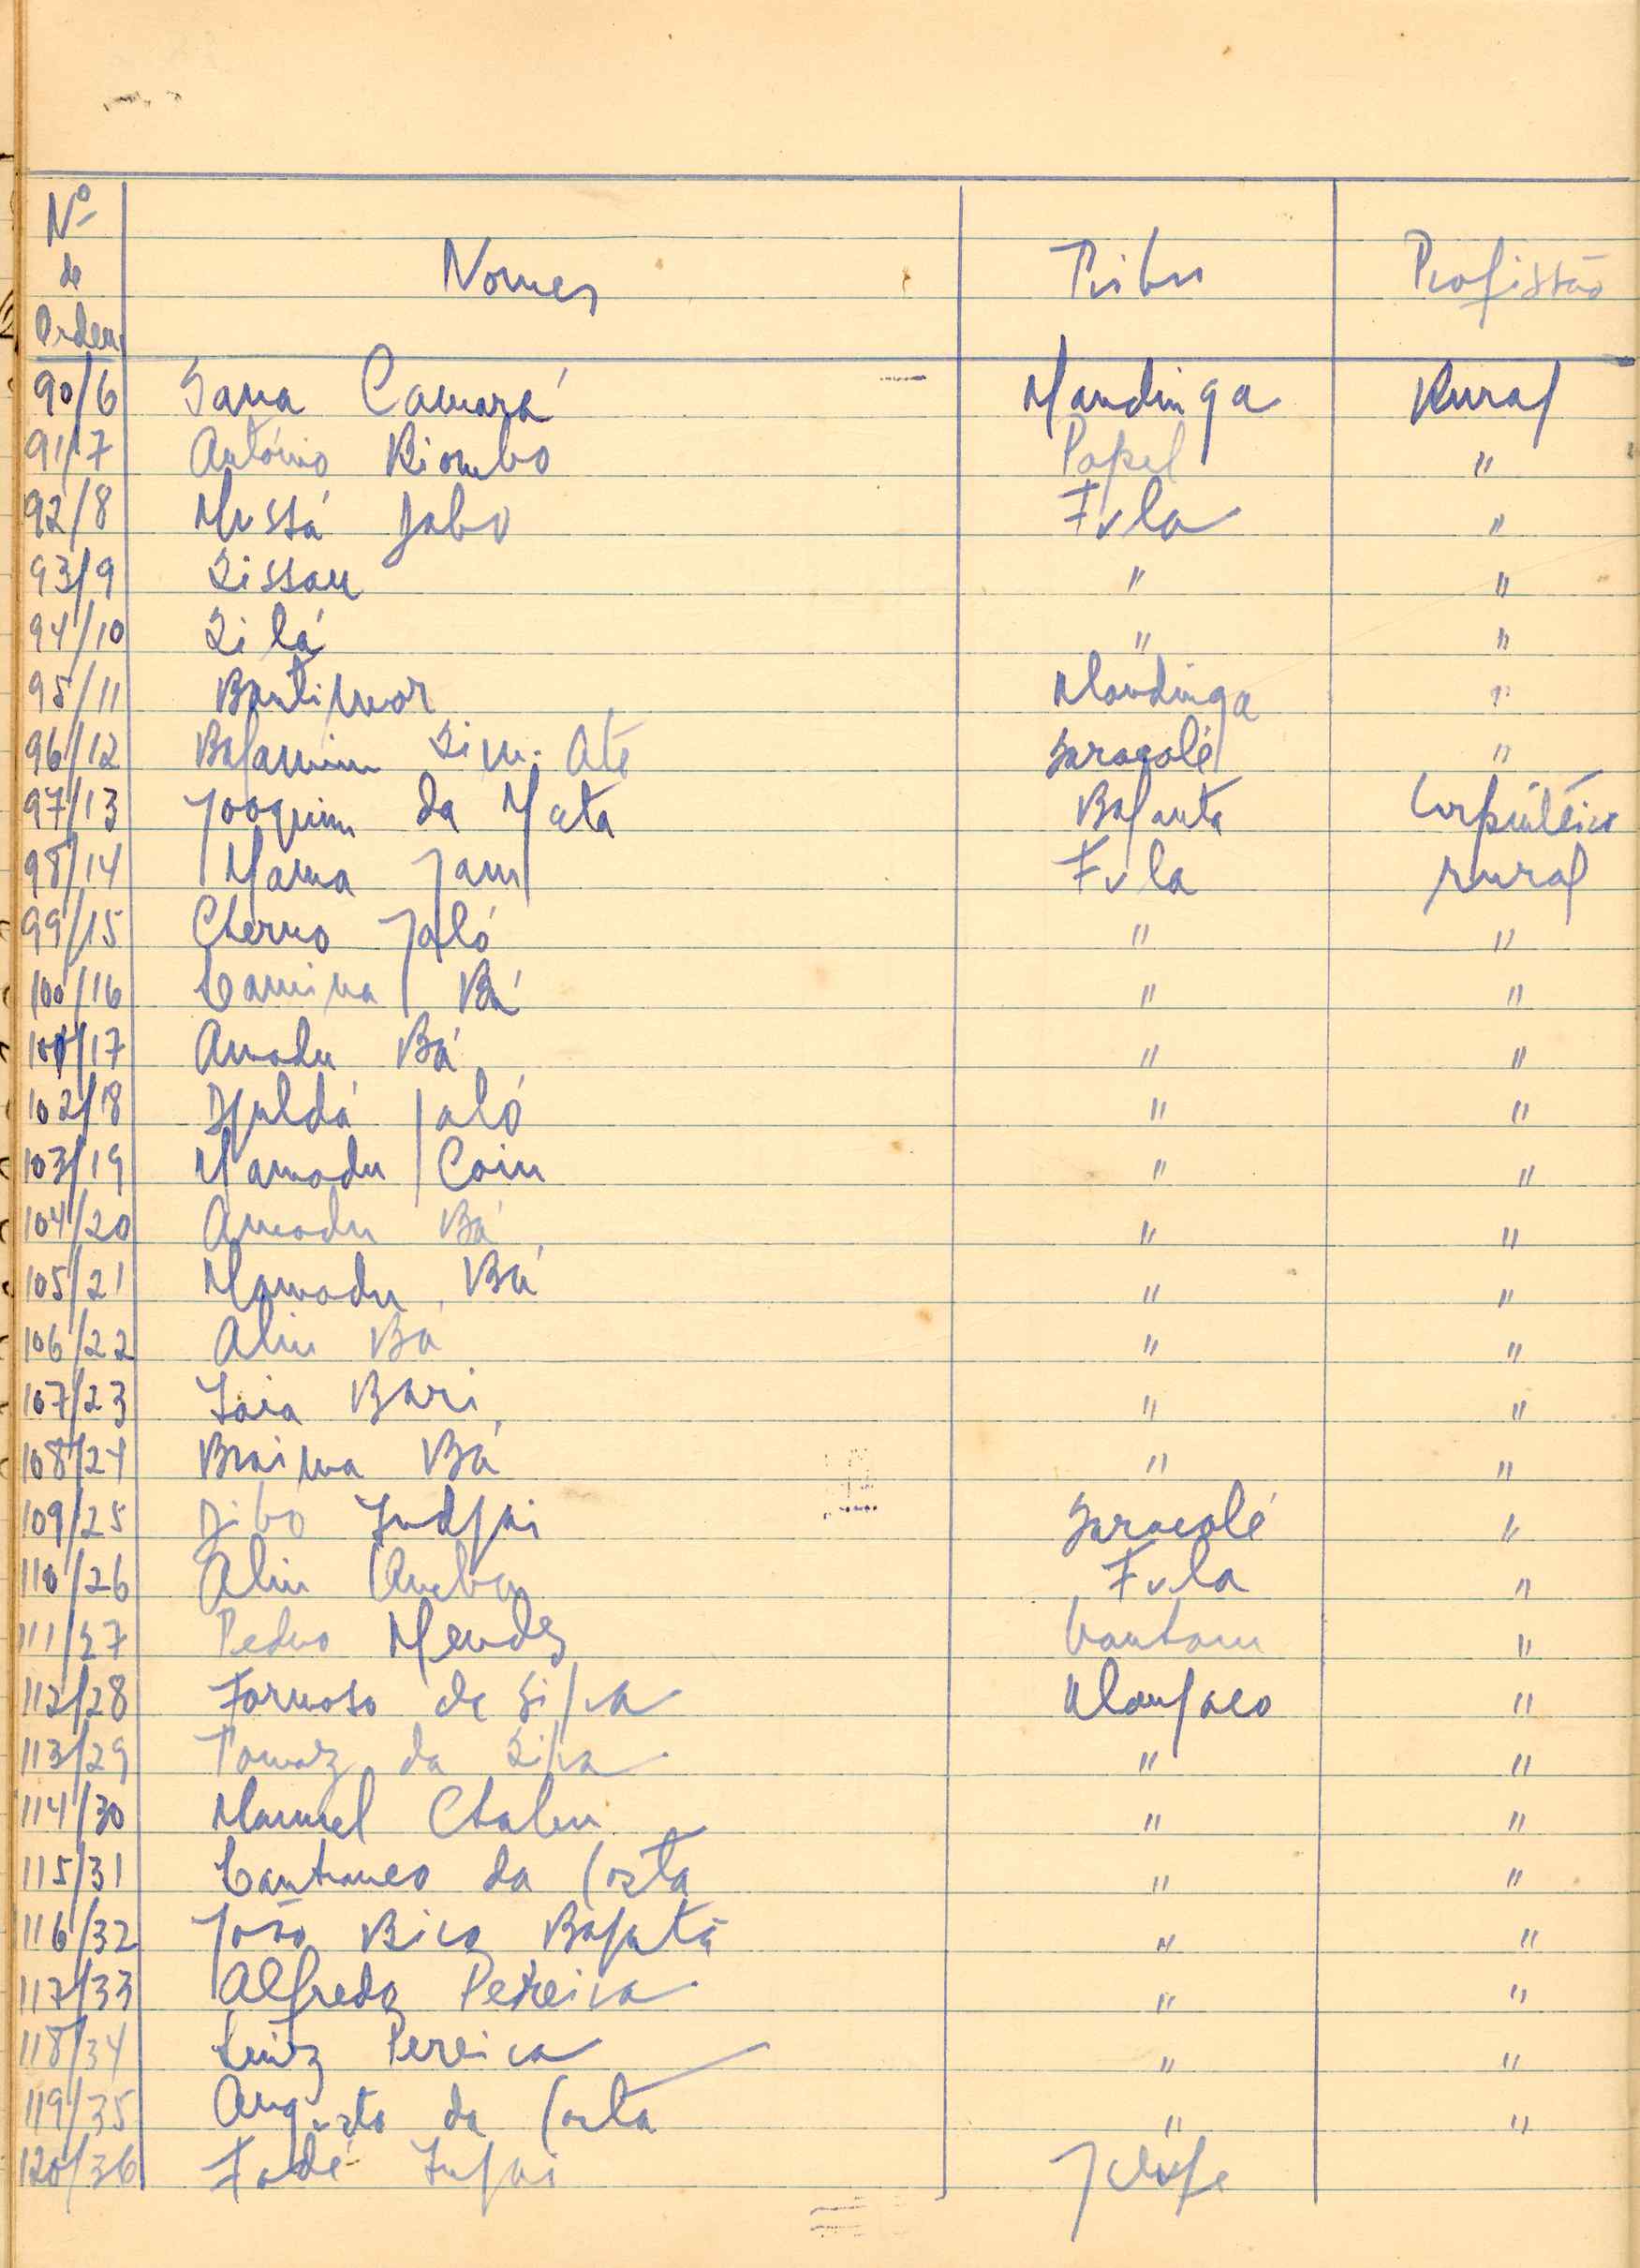 Nº de Ordem Nomes Tribu Profissão
90/6 Sana Camará Mandinga Rural
91/7 António Biombo Papel "
92/8 Mussá Jabo Fula "
93/9 Sissau " "
94/10 Silá " "
95/11 Mandinga "
96/12 Saracolé "
97/13 Joaquim da Mata Balanta Carpintéiro
98/14 Mama Jam Fula rural
99/15 Cherno Jaló " "
100/16 Lamina Bá " "
101/17 Amadu Bá " "
102/18 Djuldá Jaló " "
103/19 Mamadu " "
104/20 Amadu Bá " "
105/21 Mamadu Bá " "
106/22 Aliu Bá " "
107/23 Iaia Bari " "
108/24 Braima Bá " "
109/25 Jibo Indjai Saracolé "
110/26 Aliu Fula "
111/27 Pedro Mendes "
112/28 Formoso da Silva Manjaco "
113/29 Tomaz da Silva " "
114/30 Manuel " "
115/31 da Costa " "
116/32 João Bico " "
117/33 Alfredo Pereira " "
118/34 Luiz Pereira " "
119/35 Augusto da Costa " "
120/36 Fodé Injai